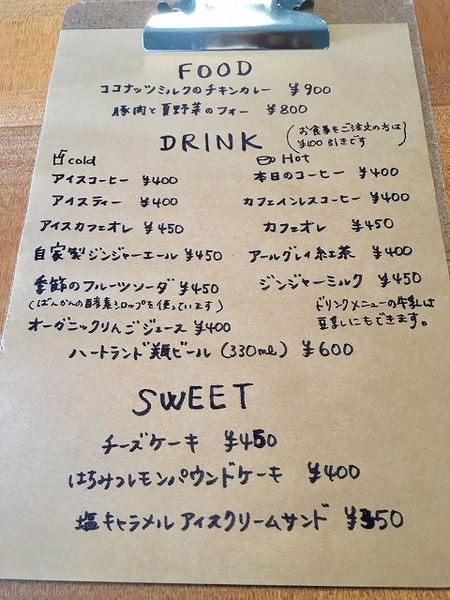 FOOD
ココナッツミルクのチキンカレー ¥900
豚肉と夏野菜のフォー ¥800
DRINK
(お食事をご注文の方は
¥100引きです)
cold
アイスコーヒー ¥400
アイスティー ¥400
アイスカフェオレ ¥450
自家製ジンジャーエール ¥450
季節のフルーツソーダ ¥450
(ばんかんの酵素シロップを使っています)
オーガニックりんごジュース ¥400
Hot
本日のコーヒー ¥400
カフェインレスコーヒー ¥400
カフェオレ ¥450
アールグレイ紅茶 ¥400
ジンジャーミルク ¥450
ドリンクメニューの牛乳は
豆乳にもできます。
ハートランド瓶ビール (330ml) ¥600
SWEET
チーズケーキ ¥450
はちみつレモンパウンドケーキ ¥400
塩キャラメルアイスクリームサンド ¥350